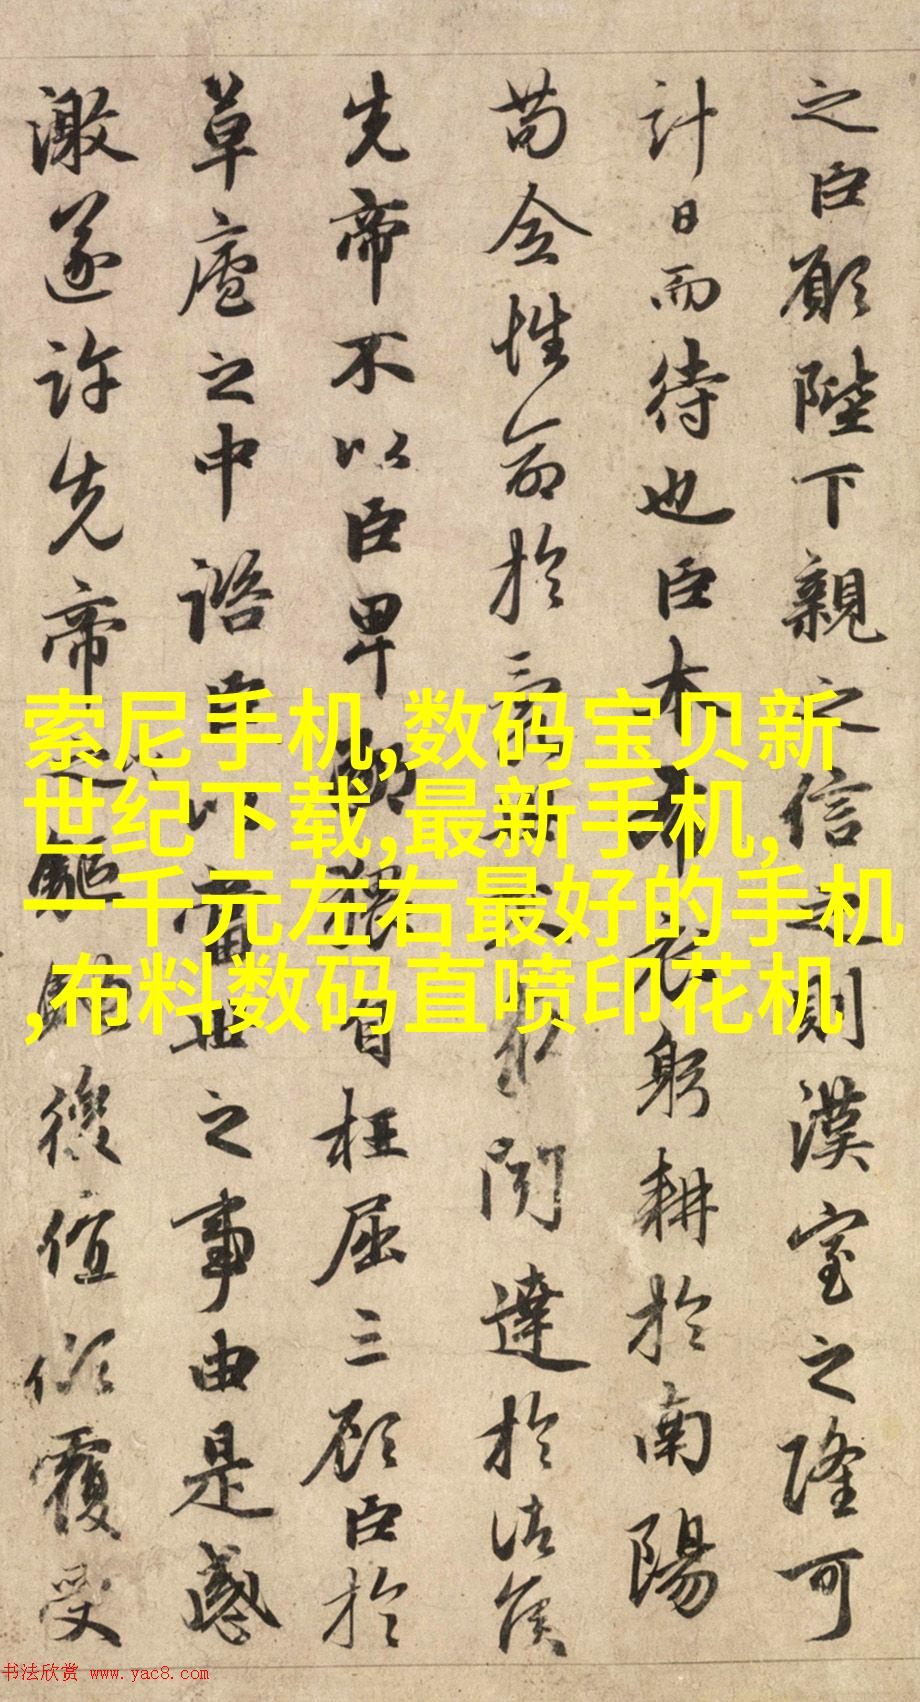 之臣願陛下親之信之則漢室之隆可
計日而待也臣本布衣躬耕於南陽
苟全性命於亂世不求聞達於諸侯
先帝不以臣卑鄙猥自枉屈三顧臣於
草廬之中諮臣以當世之事由是感
激遂許先帝驅馳後值傾覆受
索尼手机,数码宝贝新
世纪下载,最新手机,
一千元左右最好的手机
,布料数码直喷印花机
书法欣赏 www.yac8.com